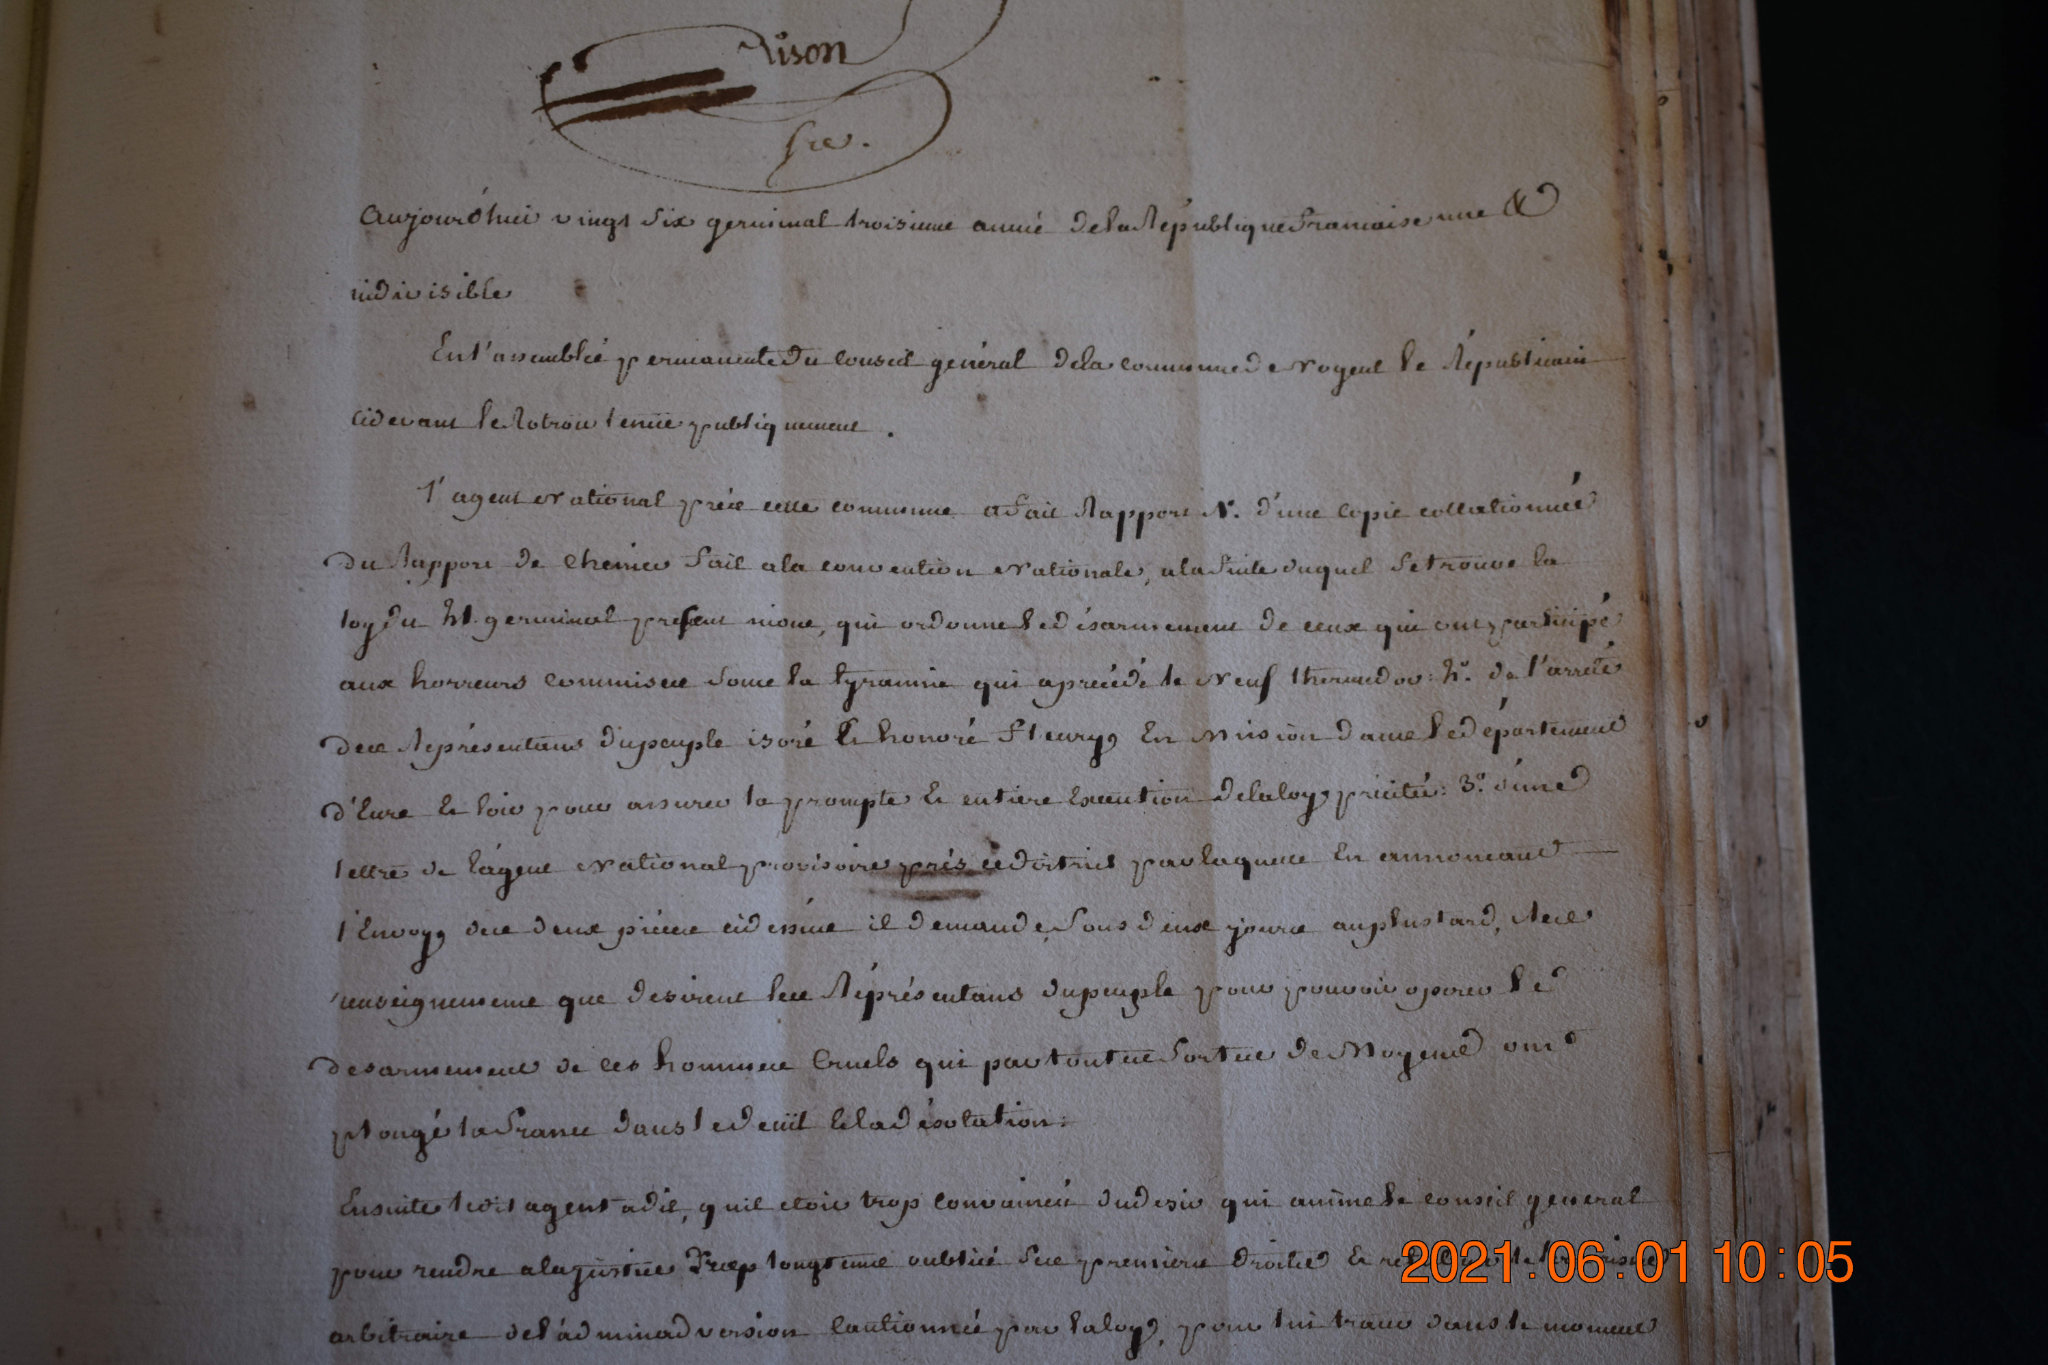 Rison
Sre.
Aujourd'hui vingt six germinal troisieme anneé de la République francaise une &
indivisible
En l'assembleé permanente du Conseil général de la commune de Nogent le Républicain
cidevant le Rotrou tenüe publiquement.
l'agent National prés cette commune a fait Rapport 1°. d'une Copie collationneé
du Rapport de Chenier fait a la convention Nationale, a la suite duquel se trouve la
loy du 21 germinal present mois, qui ordonne le désarmement de ceux qui ont participé
aux horreurs commises sous la tyrannie qui a précédé le Neuf thermidor: 2°. de l'arreté
des Représentans du peuple isoré & honoré fleury En Mission dans le département
d'Eure & loir pour assurer la prompte & entiere Execution de la loy précitée: 3°. d'une
lettre de l'agent National provisoire près ce district par laquelle En annoncant
l'Envoy des deux piéces cidessus il demande, sous deux jours au plus tard, les
renseignemens que desirent les Réprésentans du peuple pour pouvoir operer le
desarmement de ces hommes Cruels qui par toutes sortes de Moyens ont
plongé la france dans le deuïl & la désolation:
Ensuite ledit agent a dit, quil etoit trop convaincu du desir qui anime le conseil general
pour rendre a la justice trop longtems oublieé ses premiers droits &
arbitraire de l'adminadversion Cautionneé par la loy, pour lui tracer dans le moment
2021.06.01 10:05